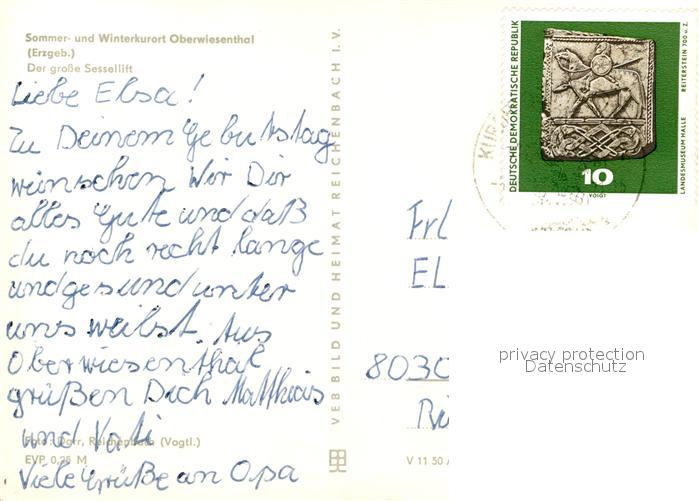 Sommer- und Winterkurort Oberwiesenthal
(Erzgeb.)
Der große Sessellift
Liebe Elsa!
Zu Deinem Gebutstag
wünschen Wir Dir
alles Gute und daß
du noch recht lange
und gesund unter
uns weilst. Aus
Oberwiesenthal
grüßen Dich Matthias
und Vati
Viele Grüße an Opa
Foto: Darr, Reichenbach (Vogtl.)
EVP 0,25 M
VEB BILD UND HEIMAT REICHENBACH I. V.
V 11 50
Frl
EL
8030
DEUTSCHE DEMOKRATISCHE REPUBLIK
10
VOIGT
LANDESMUSEUM HALLE
REITERSTEIN 700 u. Z.
KUR
privacy protection
Datenschutz